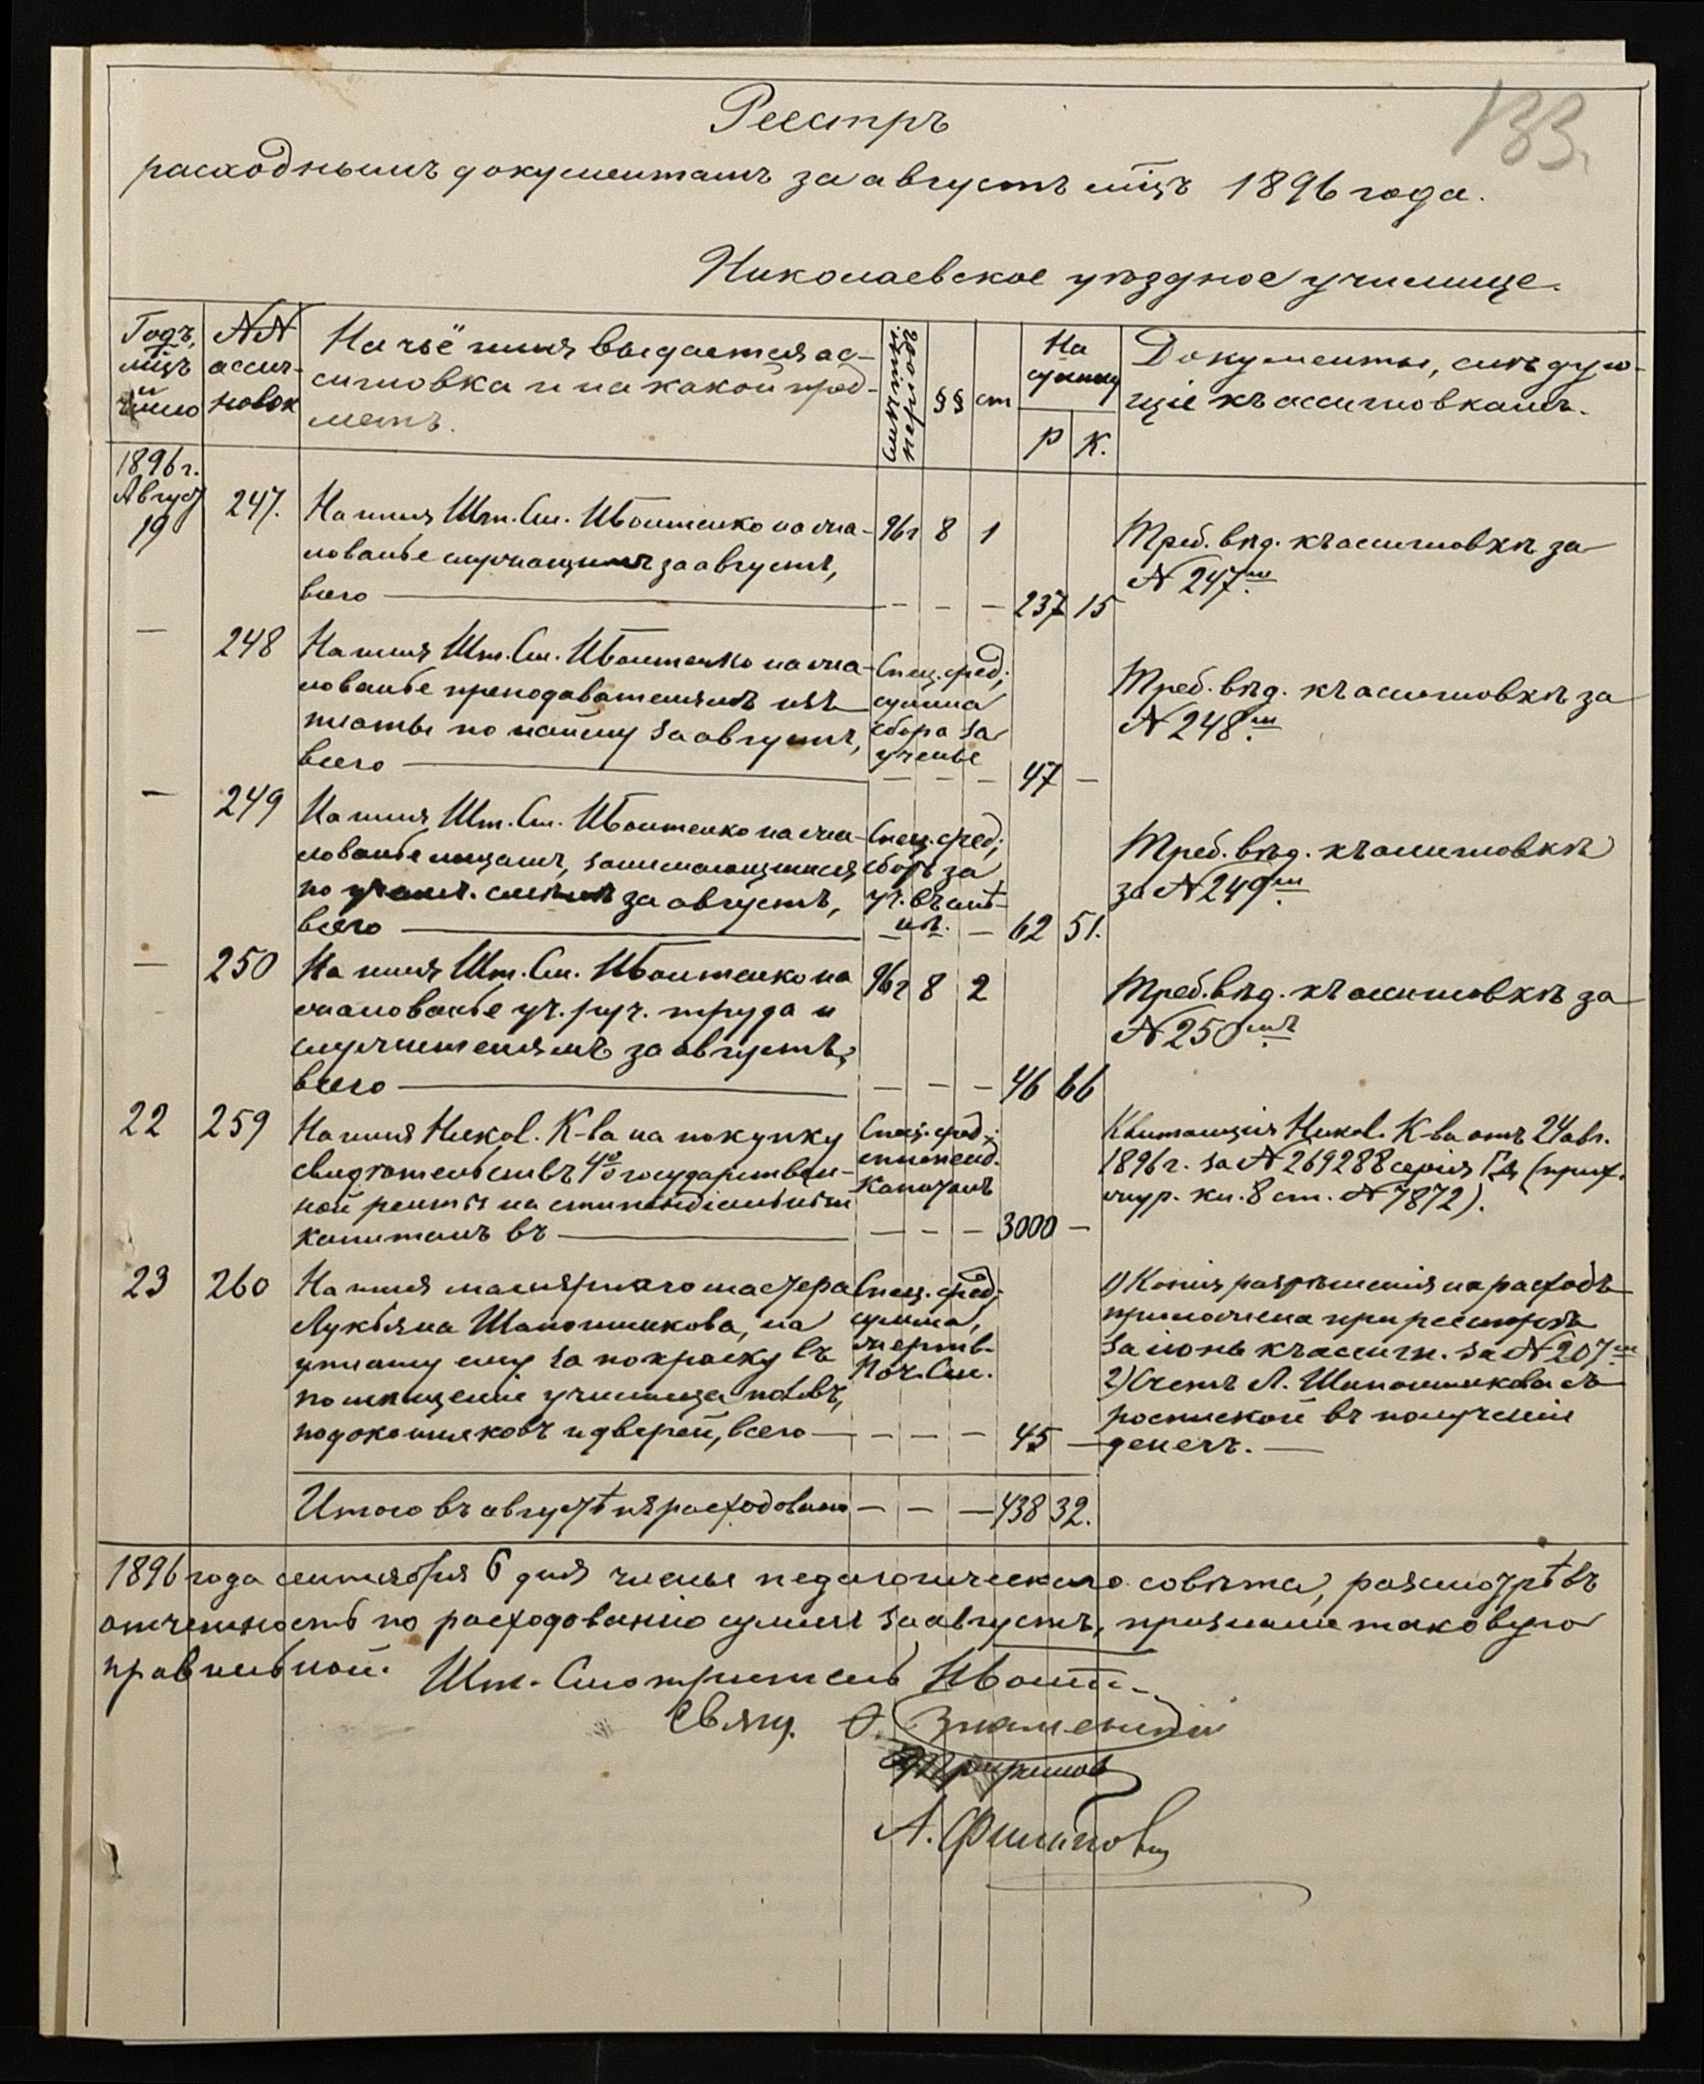 133.
Реестръ
расходнымъ документамъ за августъ мцъ 1896 года.
Николаевское уѣздное училище.
Годъ, мцъ и число
№№ ассигновок
На чьё имя выдается ас-
сигновка и на какой пред-
метъ.
Смѣтн. періодъ
§§
ст
На сумму
Р К.
Документы, слѣдую-
щіе къ ассигновкамъ.
1896 г.
Август
19 247. На имя Шт. См. Ивоитенко на жа- 96 г 8 1 Треб. вѣд. къ ассигновкѣ за
лованье служащимъ за августъ, № 247
всего — — — — 237 15
— 248 На имя Шт. См. Ивоитенко на жа- Спец. сред; Треб. вѣд. къ ассигновкѣ за
лованье преподавателямъ изъ сумма № 248
платы по найму за августъ, сбора за
всего — ученье — — — 47 —
— 249 На имя Шт. См. Ивоитенко на жа- Спец. сред; Треб. вѣд. къ ассигновкѣ
лованье лицамъ, занимающимся сборъ за за № 249
по за августъ, уч. въ смѣ-
всего — нѣ. — 62 51.
— 250 На имя Шт. См. Ивоитенко на 96 г 8 2 Треб. вѣд. къ ассигновкѣ за
жалованье уч. руч. труда и № 250
служителямъ за августъ,
всего — — — — 46 66
22 259 На имя Никол. К-ва на покупку Спец. сред.; Квитанція Никол. К-ва отъ 24 авг.
свидѣтельствъ 4% государствен- стипенд. 1896 г. за № 269288 серія (прих.
ной ренты на стипендіальный капиталъ жур. кн. 8 ст. № 7872).
капиталъ въ — — — — 3000 —
23 260 На имя малярнаго мастера Спец. сред; 1) Копія разрѣшенія на расходъ
Лукьяна Шапошникова, на сумма, приложена при реестрѣ
уплату ему за покраску въ жертв. за іюнь къ ассигн. за № 207
помѣщеніи училища половъ, Поч. См. 2) Счетъ Л. Шапошникова съ
подоконниковъ и дверей, всего — — — — 45 — роспиской въ полученіи
денегъ. —
Итого въ августѣ израсходовано — — — 438 32.
1896 года сентября 6 дня члены педагогическаго совѣта, разсмотрѣвъ
отчетность по расходованію суммъ за августъ, признали таковую
правильной. Шт. Смотритель
Свящ. Ѳ. Знаменскій
А. Филиповъ